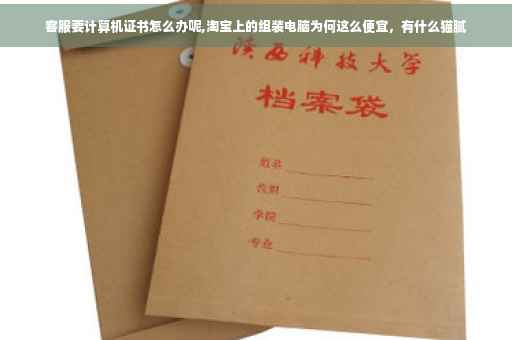 客服要计算机证书怎么办呢,淘宝上的组装电脑为何这么便宜，有什么猫腻
陕西科技大学
档案袋
姓名
学院
专业